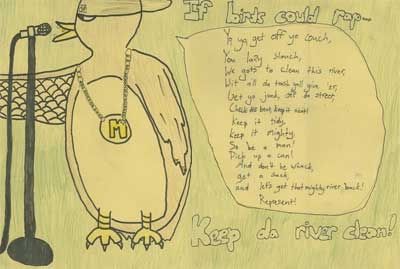 If birds could rap...
Ya ya get off ye couch,
You lazy slouch,
We gots to clean this river,
Wit all da trash yall give 'er,
Get yo junk, off da street,
Check dis beat, keep it neat!
Keep it tidy,
Keep it mighty,
So be a man!
Pick up a can!
And don't be whack,
get a sack,
and let's get that mighty river back!
Represent!
M
Keep da river clean!